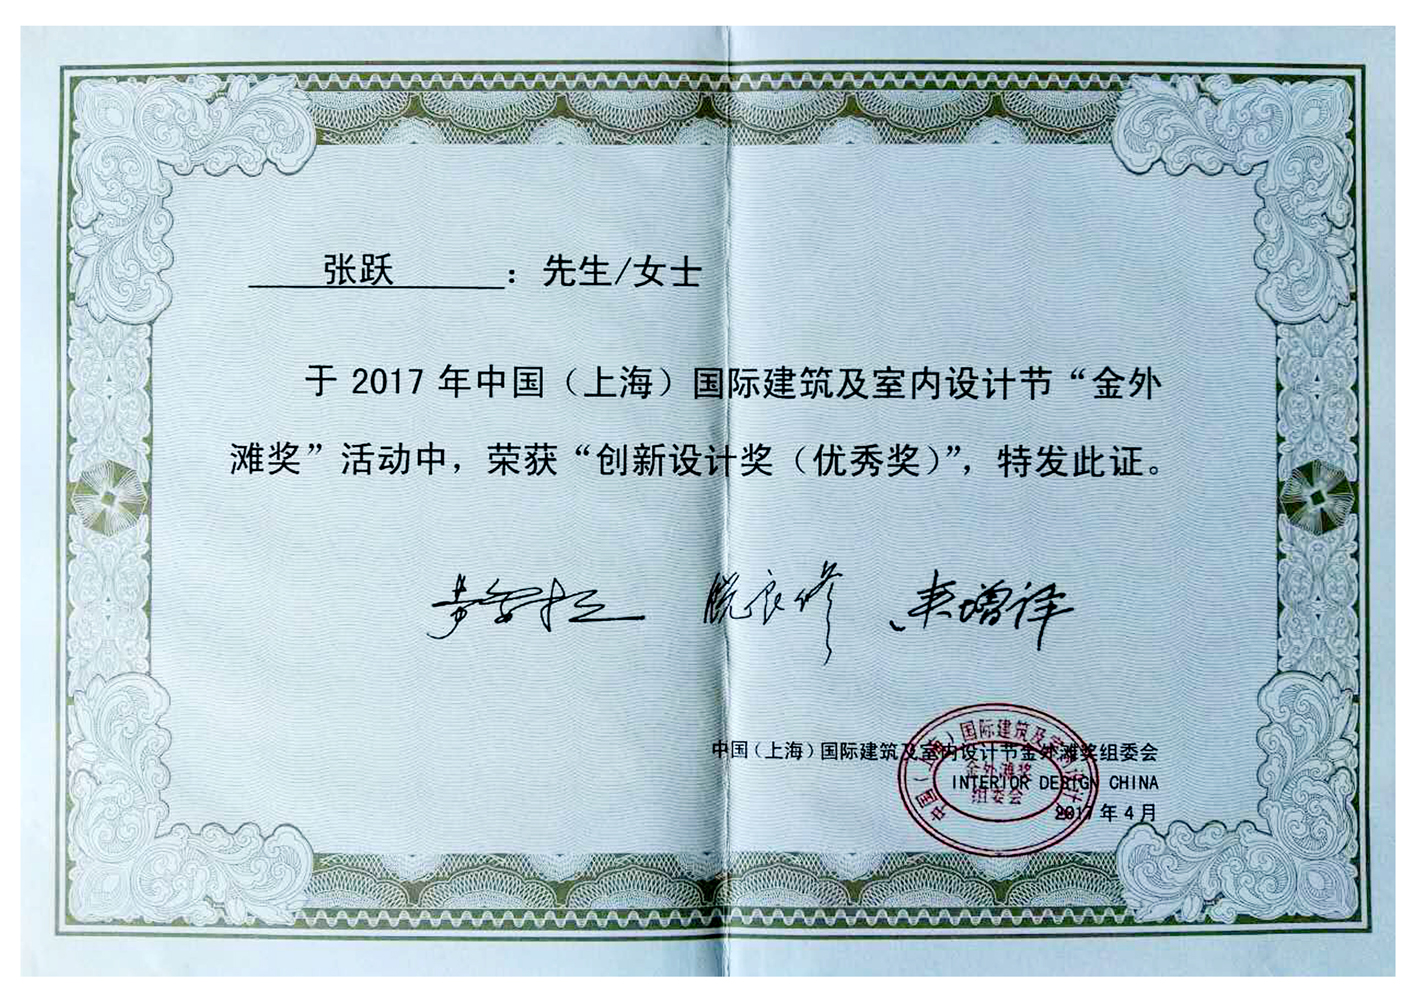 张跃 ：先生/女士
于 2017 年中国（上海）国际建筑及室内设计节“金外
滩奖”活动中，荣获“创新设计奖（优秀奖）”，特发此证。
中国（上海）国际建筑及室内设计节金外滩奖组委会
INTERIOR DESIGN CHINA
2017 年 4 月
中国（上海）国际建筑及室内设计节
金外滩奖
组委会